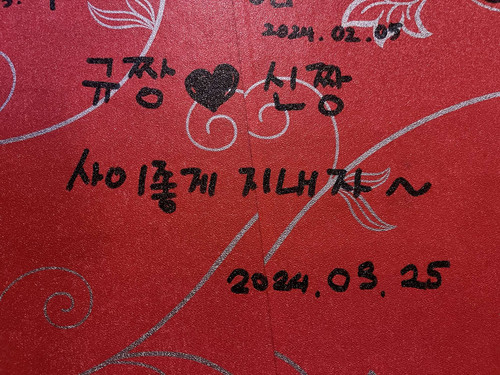 2024.02.05
규짱 ♥ 신짱
사이좋게 지내자~
2024.03.25